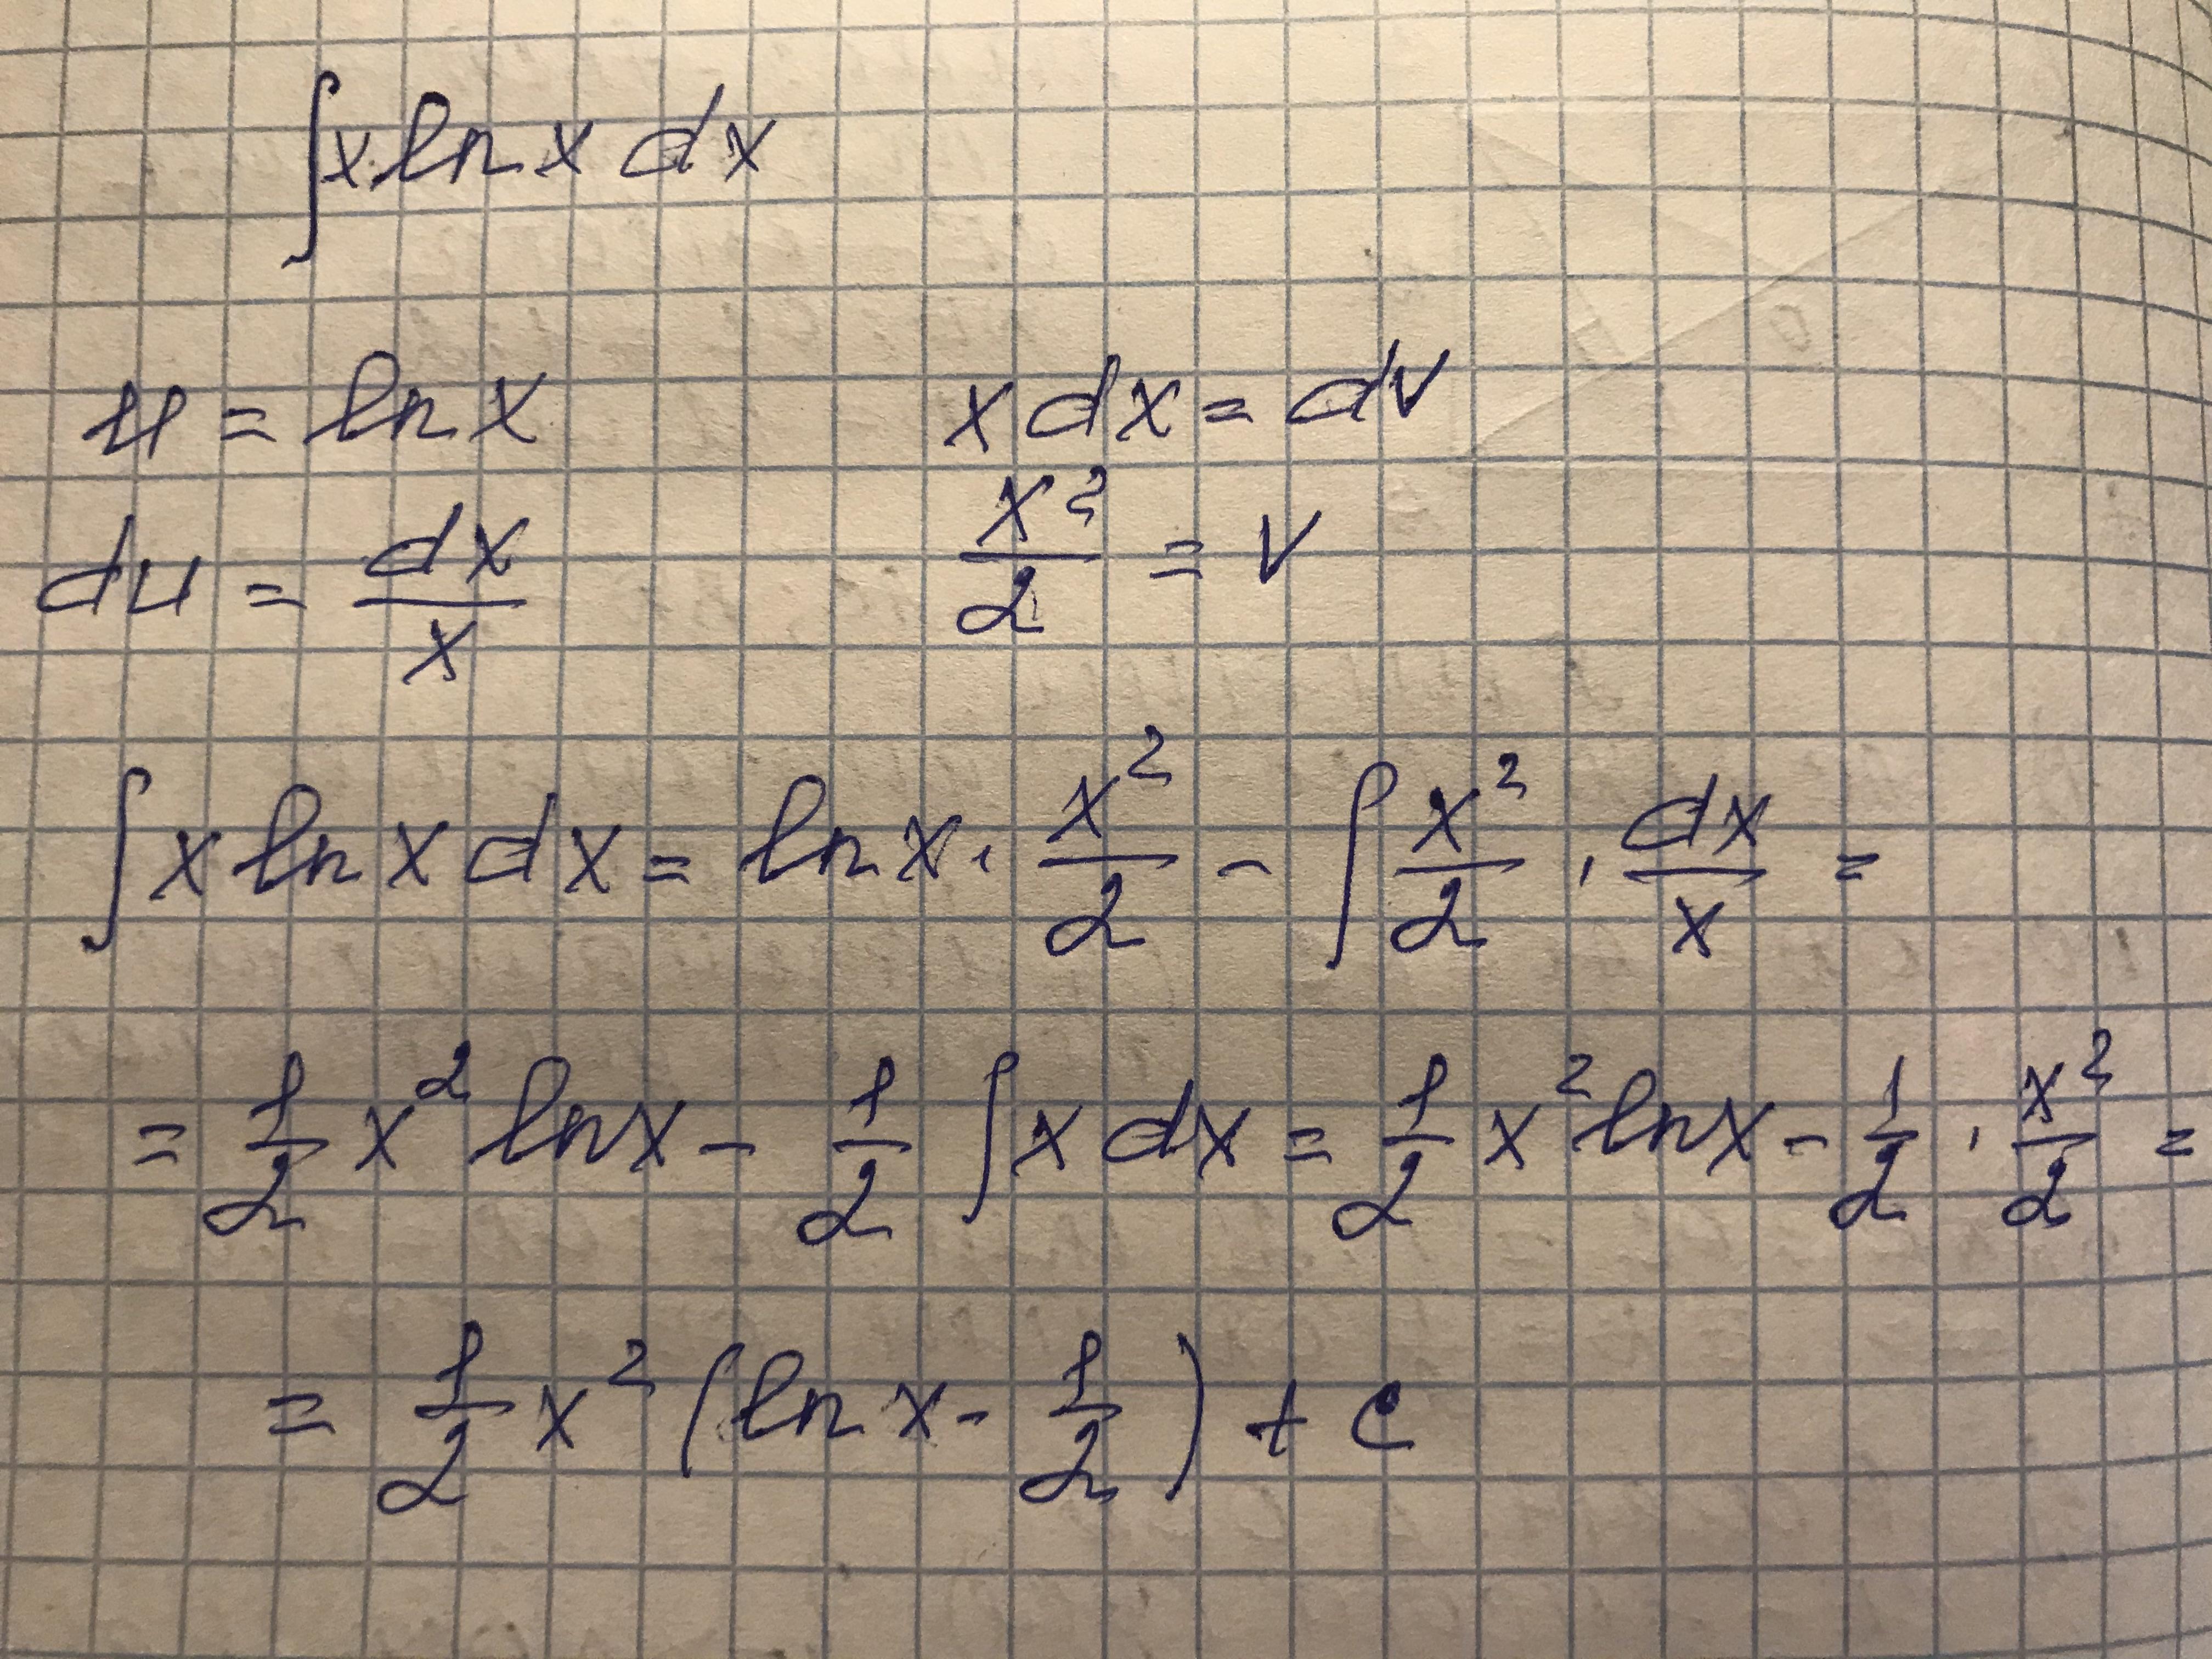 ∫x ln x dx
u = ln x     x dx = dv
du = dx/x     x²/2 = v
∫x ln x dx = ln x · x²/2 - ∫ x²/2 · dx/x =
= 1/2 x² ln x - 1/2 ∫x dx = 1/2 x² ln x - 1/2 · x²/2 =
= 1/2 x² (ln x - 1/2) + C